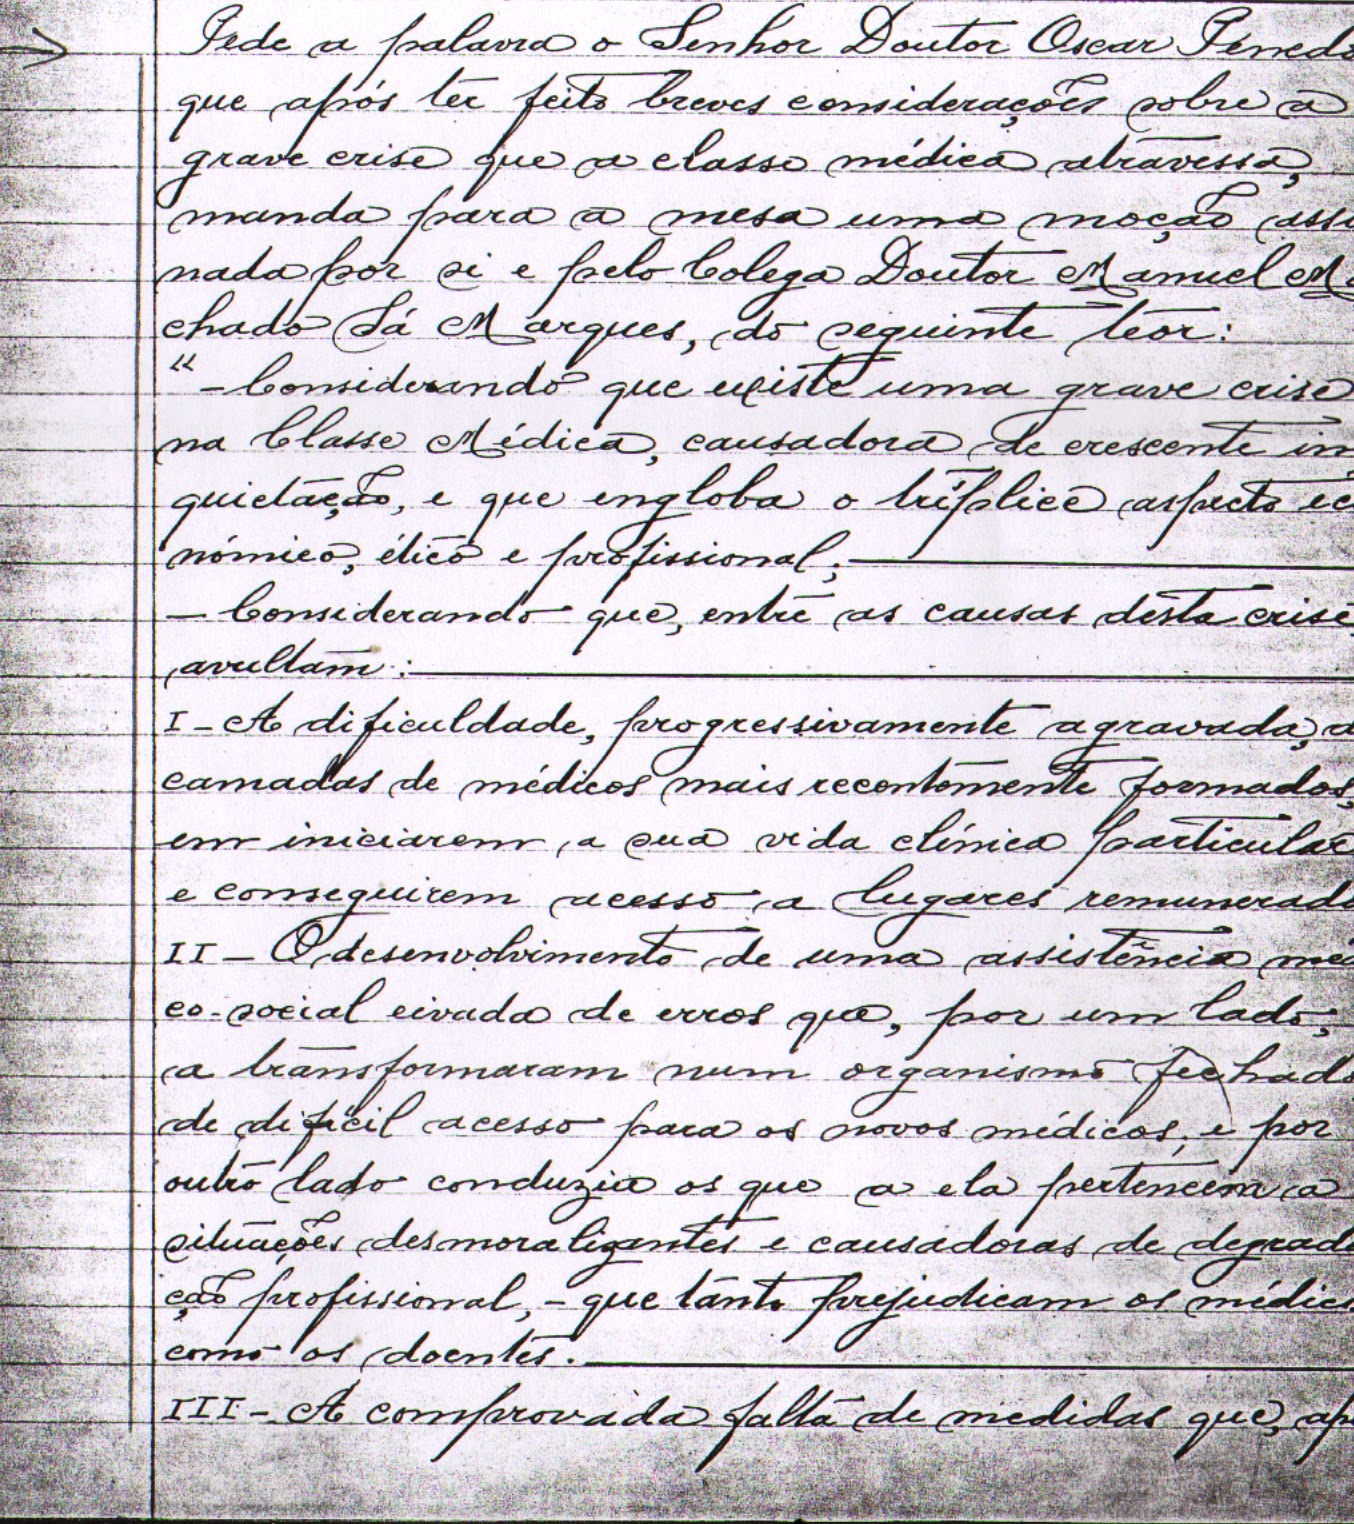 Pede a palavra o Senhor Doutor Oscar Penedo
que após ter feito breves considerações sobre a
grave crise que a classe médica atravessa,
manda para a mesa uma moção assi
nada por si e pelo Colega Doutor Manuel Ma
chado Sá Marques, do seguinte teor:
"- Considerando que existe uma grave crise
na Classe Médica, causadora de crescente in
quietação, e que engloba o tríplice aspecto ec
nómico, ético e profissional;
- Considerando que, entre as causas desta crise,
avultam:
I - A dificuldade, progressivamente agravada, d
camadas de médicos mais recentemente formados,
em iniciarem a sua vida clínica particular
e conseguirem acesso a lugares remunerado
II - O desenvolvimento de uma assistência méd
co-social eivada de erros que, por um lado,
a transformaram num organismo fechado
de difícil acesso para os novos médicos, e por
outro lado conduzia os que a ela pertencem a
situações desmoralizantes e causadoras de degrada
ção profissional, - que tanto prejudicam os médico
como os doentes.
III - A comprovada falta de medidas que, ap